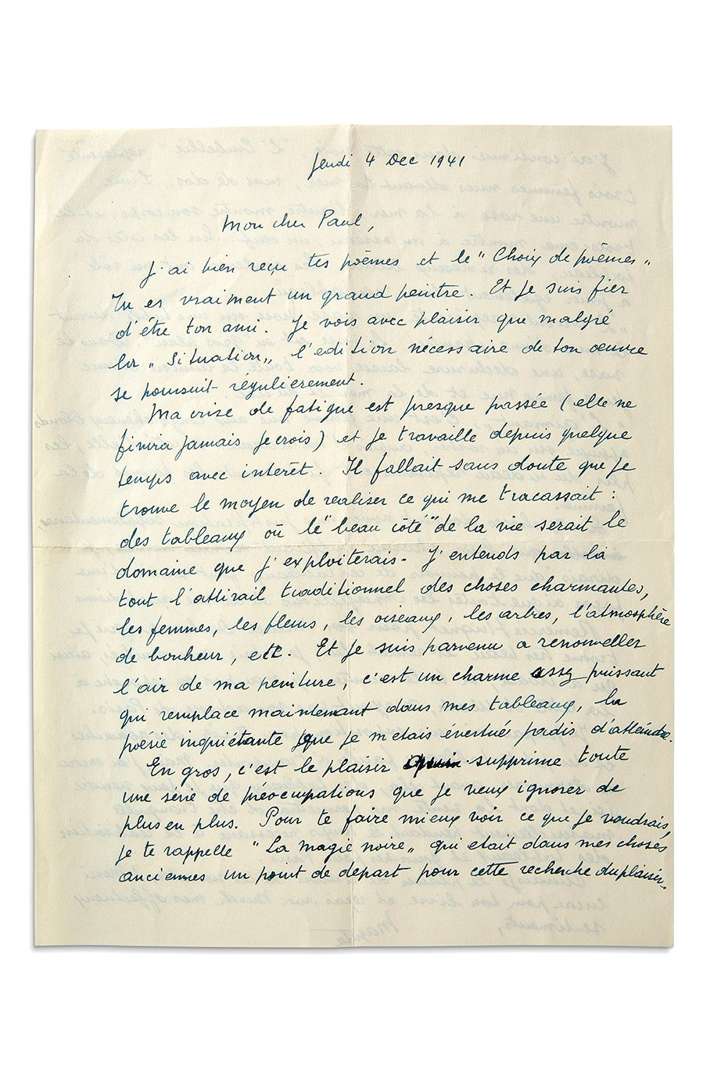 Jeudi 4 Dec 1941
Mon cher Paul,
J'ai bien reçu tes poèmes et le "Choix de poèmes".
Tu es vraiment un grand peintre. Et je suis fier
d'être ton ami. Je vois avec plaisir que malgré
la "Situation", l'edition nécessaire de ton œuvre
se poursuit régulierement.
Ma crise de fatigue est presque passée (elle ne
finira jamais je crois) et je travaille depuis quelque
temps avec interêt. Il fallait sans doute que je
trouve le moyen de realiser ce qui me tracassait :
des tableaux où le "beau côté" de la vie serait le
domaine que j'exploiterais. J'entends par là
tout l'attirail traditionnel des choses charmantes,
les femmes, les fleurs, les oiseaux, les arbres, l'atmosphère
de bonheur, etc. Et je suis parvenu a renouveller
l'air de ma peinture, c'est un charme assez puissant
qui remplace maintenant dans mes tableaux, la
poésie inquiétante que je m'etais évertué jadis d'atteindre.
En gros, c'est le plaisir qui supprime toute
une série de préocupations que je veux ignorer de
plus en plus. Pour te faire mieux voir ce que je voudrais,
je te rappelle "La magie noire" qui etait dans mes choses
anciennes un point de depart pour cette recherche du plaisir.